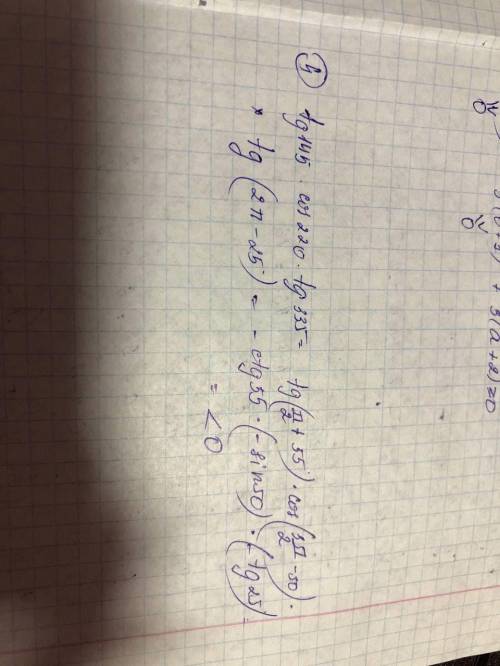 ≥0 ... + 3(a+2)≥0
③ tg 145 · cos 220 · tg 335 = tg(π/2 + 55) · cos(3π/2 - 50) ·
* tg (2π - 25) = - ctg 55 · (- sin 50) · (- tg 25) =
= < 0